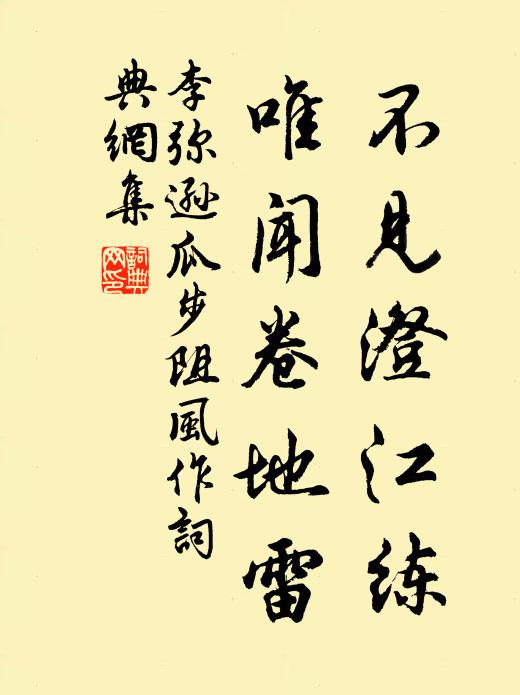 不见澄江练
唯闻卷地雷
李弥逊瓜步阻风作词
典網集
詞典
网印